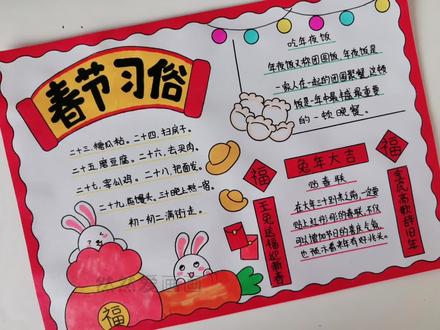 春节习俗
二十三，糖瓜粘。二十四，扫房子。
二十五，磨豆腐。二十六，去买肉。
二十七，宰公鸡。二十八，把面发。
二十九，蒸馒头。三十晚上熬一宿。
初一初二满街走。
吃年夜饭
年夜饭又称团圆饭，年夜饭是
一家人在一起的团圆聚餐，这顿
饭是一年中最
重要
的一顿晚餐。
福
兔年大吉
贴春联
在大年三十到来之前，一定要
贴上红彤彤的春联，不仅
可以增加节日的喜庆气氛，
也预示着来年有好兆头。
玉兔送福迎新春
辞旧年
福
然然爱画画